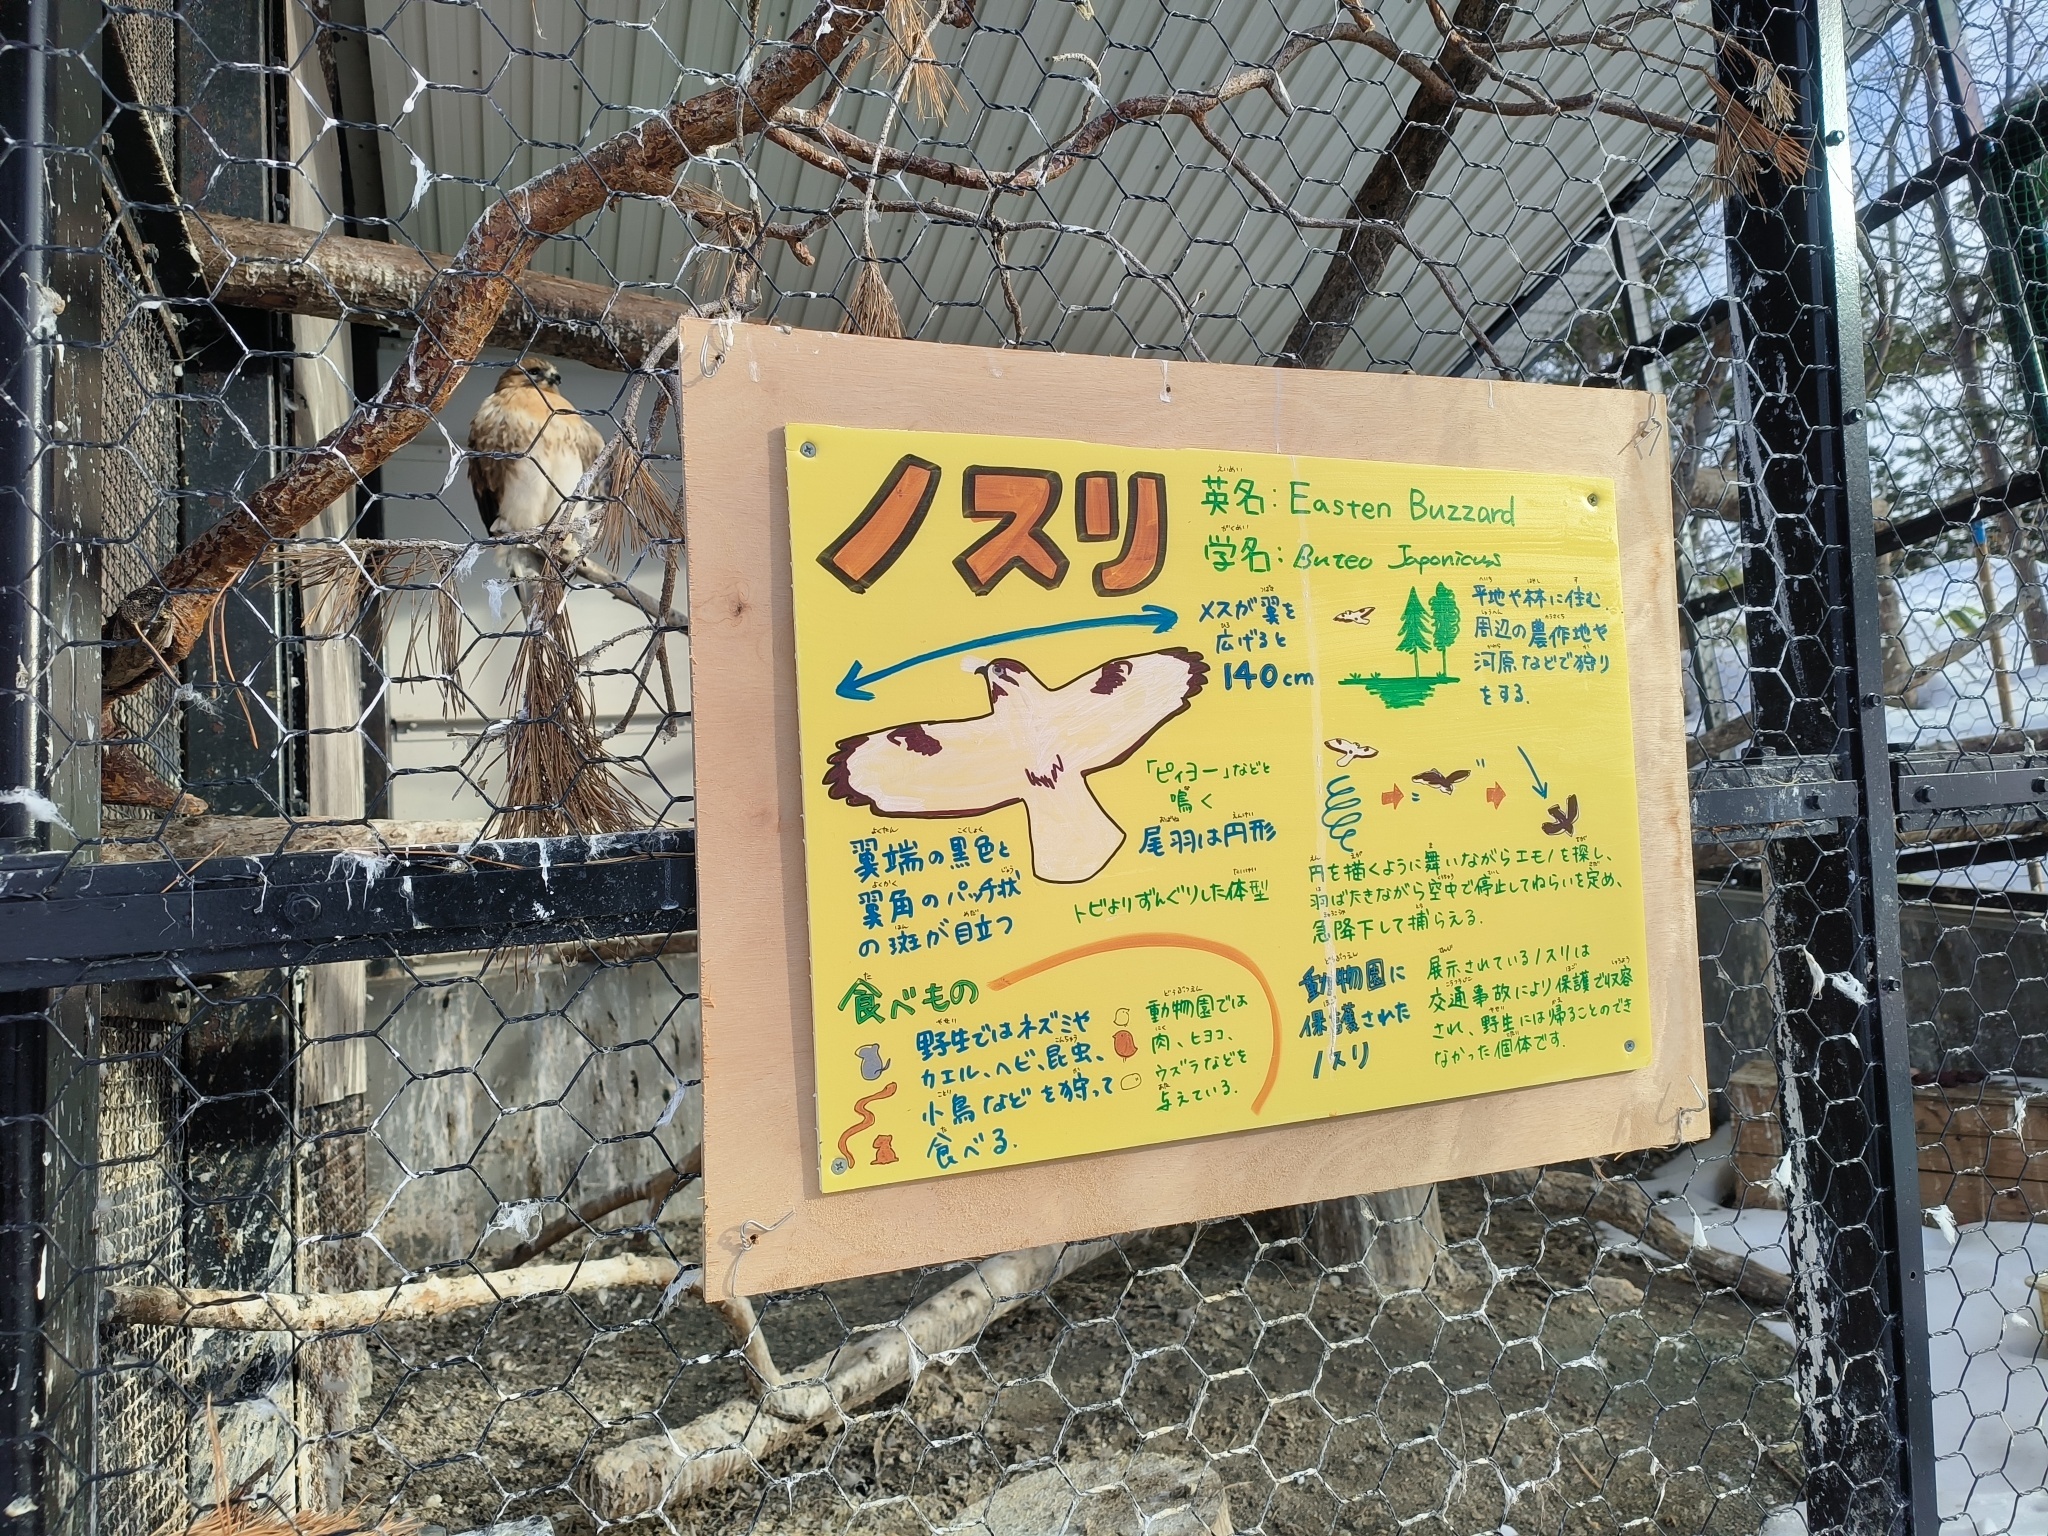 ノスリ
英名: Easten Buzzard
学名: Buteo Japonicus
メスが翼を
広げると
140cm
平地や林に住む。
周辺の農作地や
河原などで狩り
をする。
「ピィヨー」などと
鳴く
尾羽は円形
翼端の黒色と
翼角のパッチ状
の斑が目立つ
トビよりずんぐりした体型
円を描くように舞いながらエモノを探し、
羽ばたきながら空中で停止してねらいを定め、
急降下して捕らえる。
食べもの
野生ではネズミや
カエル、ヘビ、昆虫、
小鳥などを狩って
食べる。
動物園では
肉、ヒヨコ、
ウズラなどを
与えている。
動物園に
保護された
ノスリ
展示されているノスリは
交通事故により保護で収容
され、野生には帰ることのでき
なかった個体です。